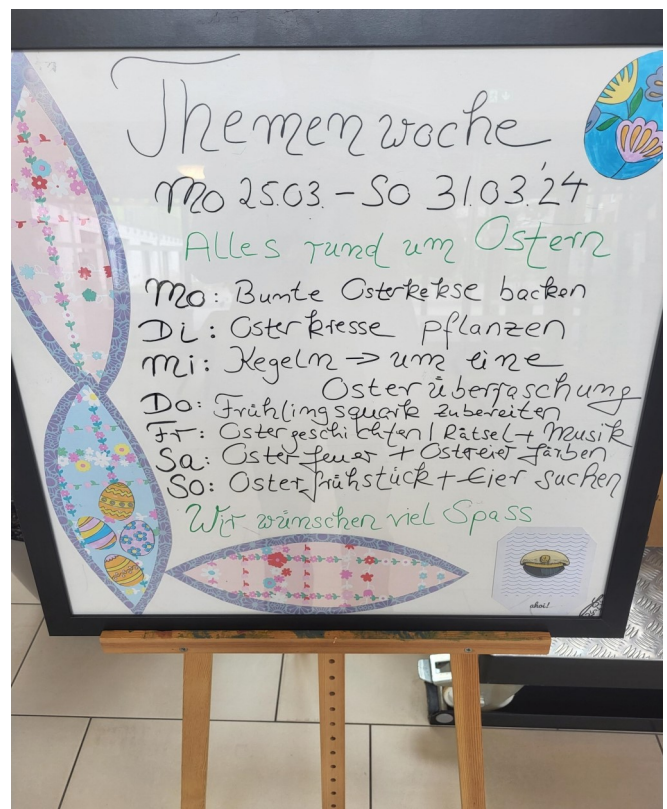 Themenwoche
Mo 25.03. – So 31.03.'24
Alles rund um Ostern
Mo: Bunte Osterkekse backen
Di: Osterkresse pflanzen
Mi: Kegeln → um eine
Osterüberraschung
Do: Frühlingsquark zubereiten
Fr: Ostergeschichten / Rätsel + Musik
Sa: Osterfeuer + Ostereier färben
So: Osterfrühstück + Eier suchen
Wir wünschen viel Spass
ahoi!